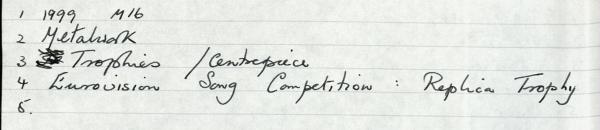 1 1999 M16
2 Metalwork
3 Trophies / Centrepiece
4 Eurovision Song Competition : Replica Trophy
5.